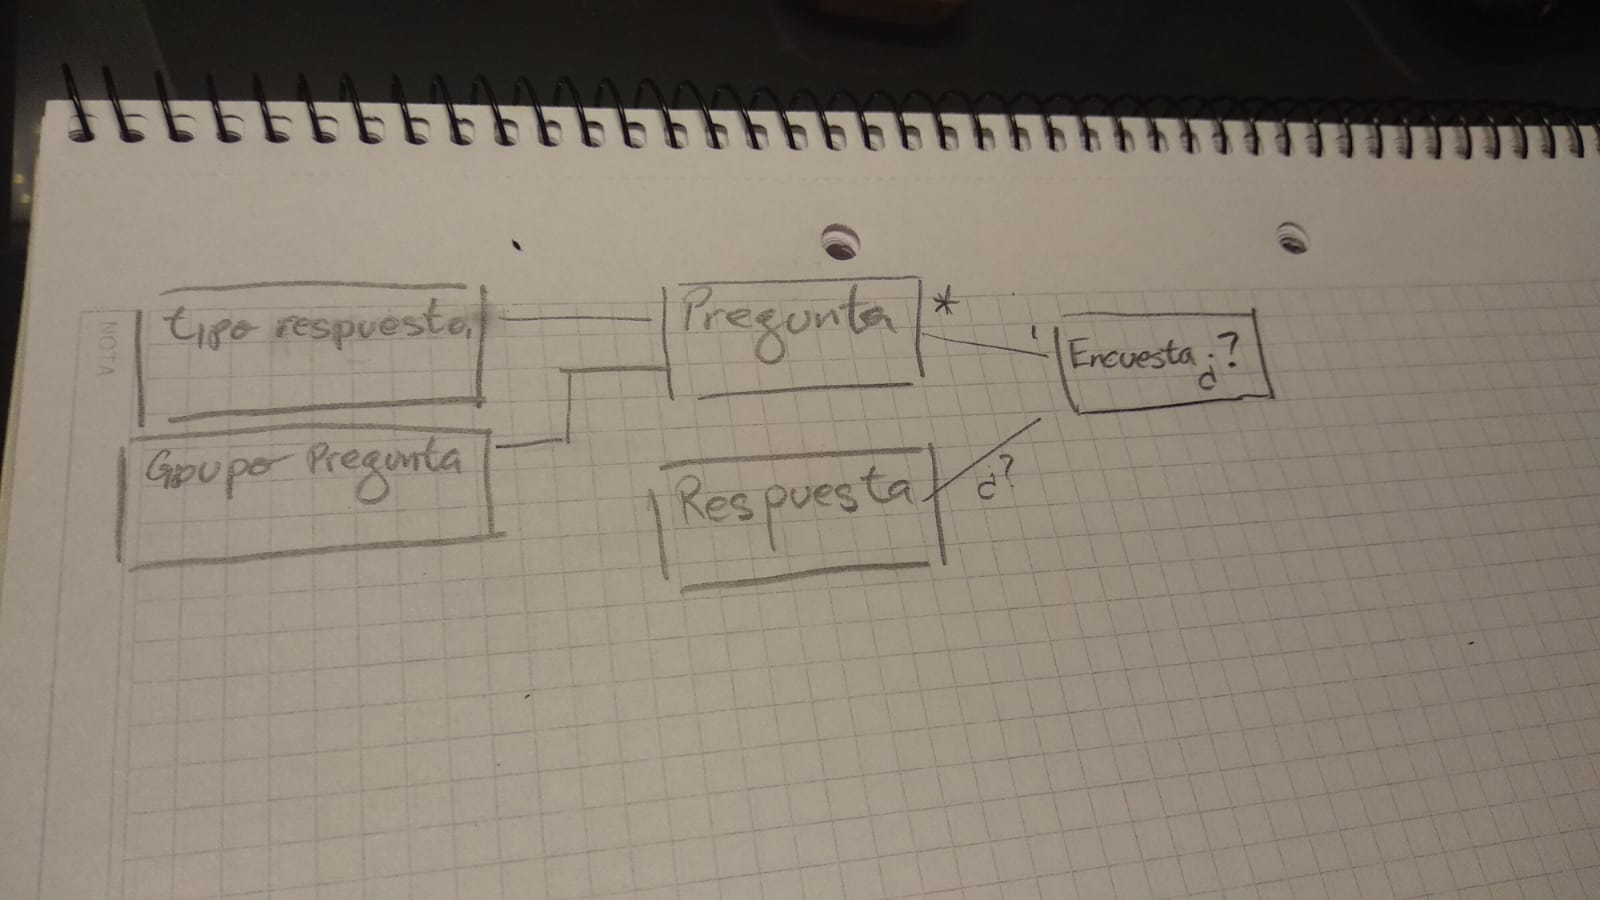 NOTA
tipo respuesta
Pregunta *
1 Encuesta ¿?
Grupo Pregunta
Respuesta ¿?